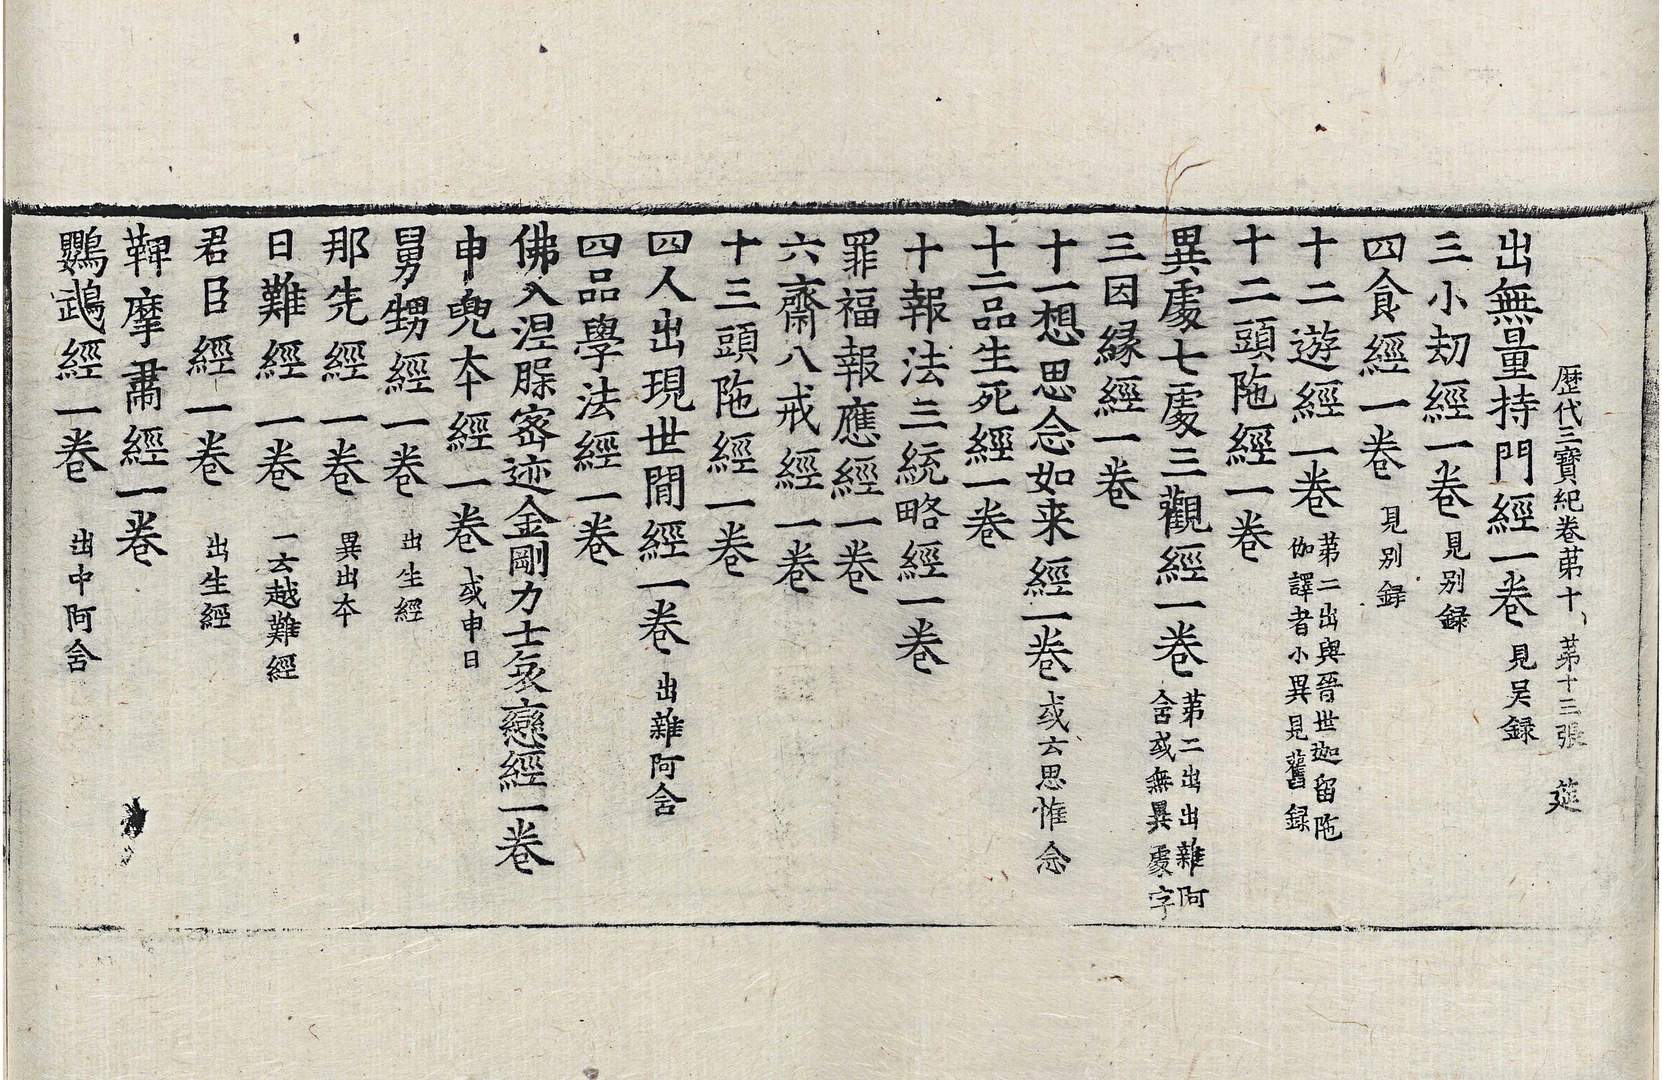 歷代三寶紀卷苐十、 苐十三張 莚
出無量持門經一卷 見吴録
三小劫經一卷 見别録
四食經一卷 見别録
十二遊經一卷 苐二出與晉世迦留陁
伽譯者小異見舊録
十二頭陁經一卷
異處七處三觀經一卷 苐二出出雜阿
含或無異處字
三因緣經一卷
十一想思念如来經一卷 或云思惟念
十二品生死經一卷
十報法三統略經一卷
罪福報應經一卷
六齋八戒經一卷
十三頭陁經一卷
四人出現世間經一卷 出雜阿含
四品學法經一卷
佛入涅槃密迹金剛力士哀戀經一卷
申兜本經一卷 或申日
舅甥經一卷 出生經
那先經一卷 異出本
日難經一卷 一云越難經
君臣經一卷 出生經
鞞摩肅經一卷
鸚鵡經一卷 出中阿含